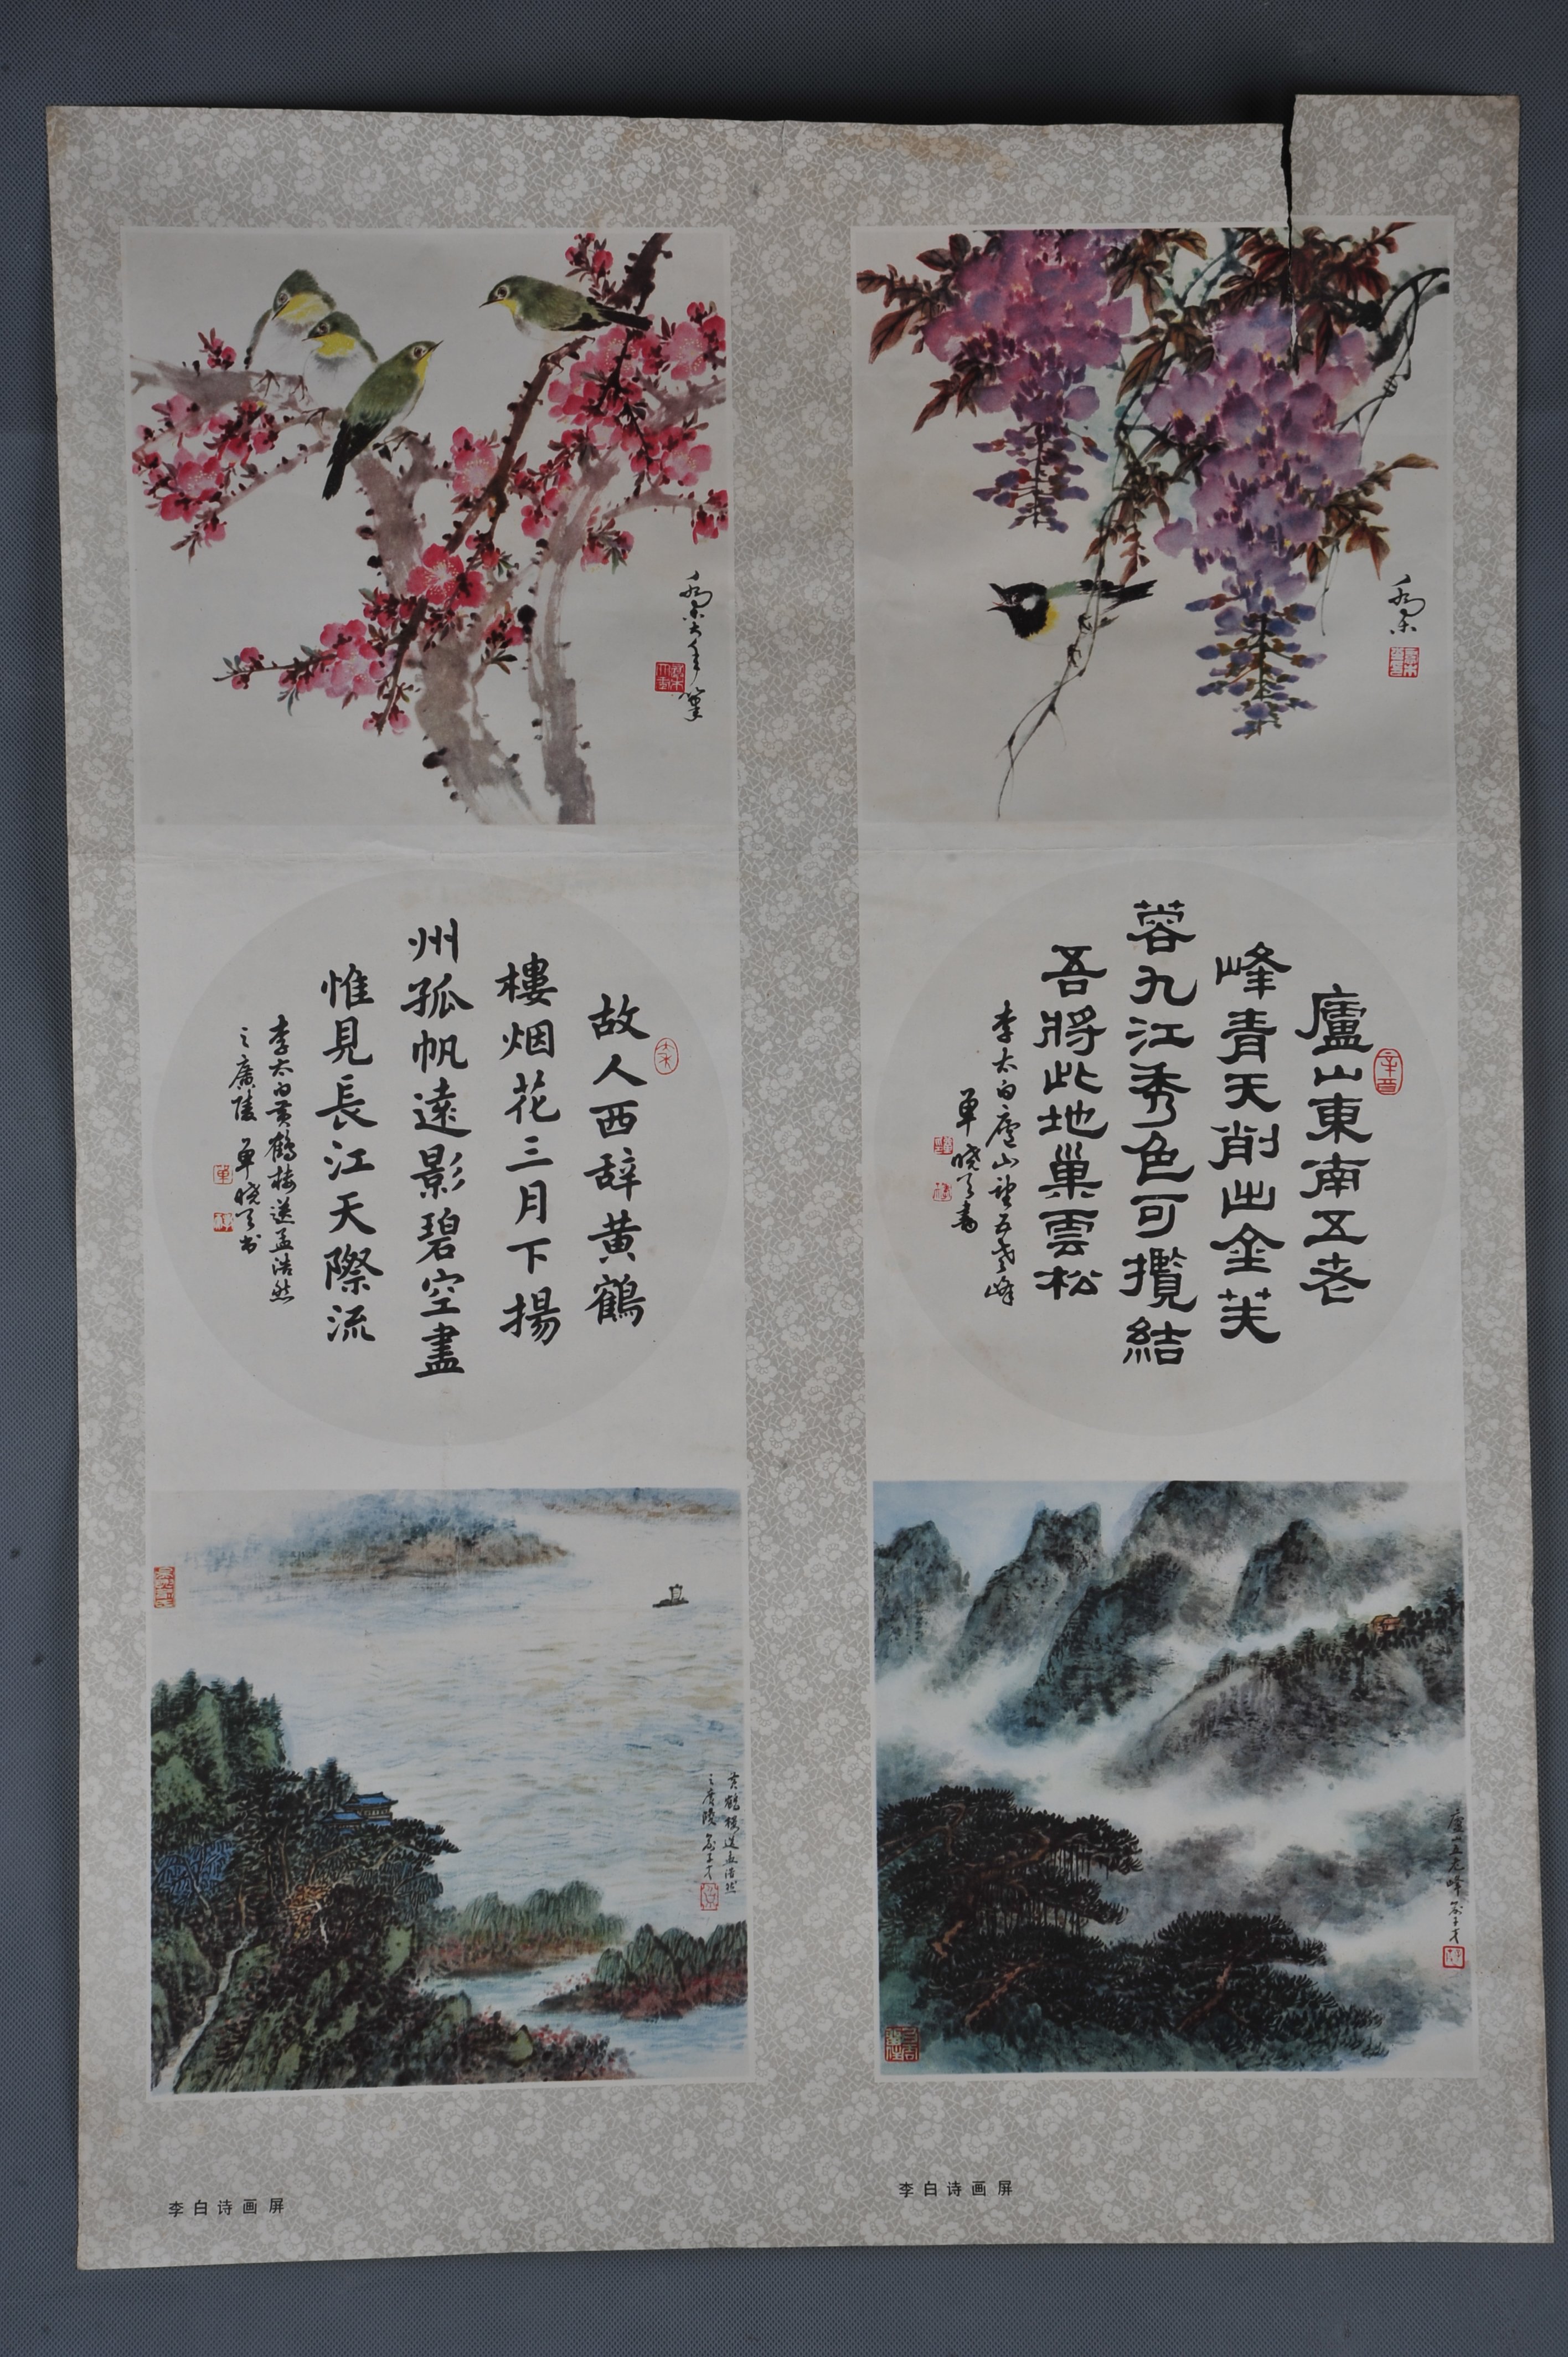 乔木
辛酉
廬山東南五老
峰青天削出金芙
蓉九江秀色可攬結
吾將此地巢雲松
李太白廬山望五老峰
單曉天書
廬山五老峰
李白诗画屏
喬木大年筆
故人西辞黄鶴
樓烟花三月下揚
州孤帆遠影碧空盡
惟見長江天際流
李太白黄鶴樓送孟浩然
之廣陵 單曉天书
黄鶴樓送孟浩然
之廣陵
李白诗画屏